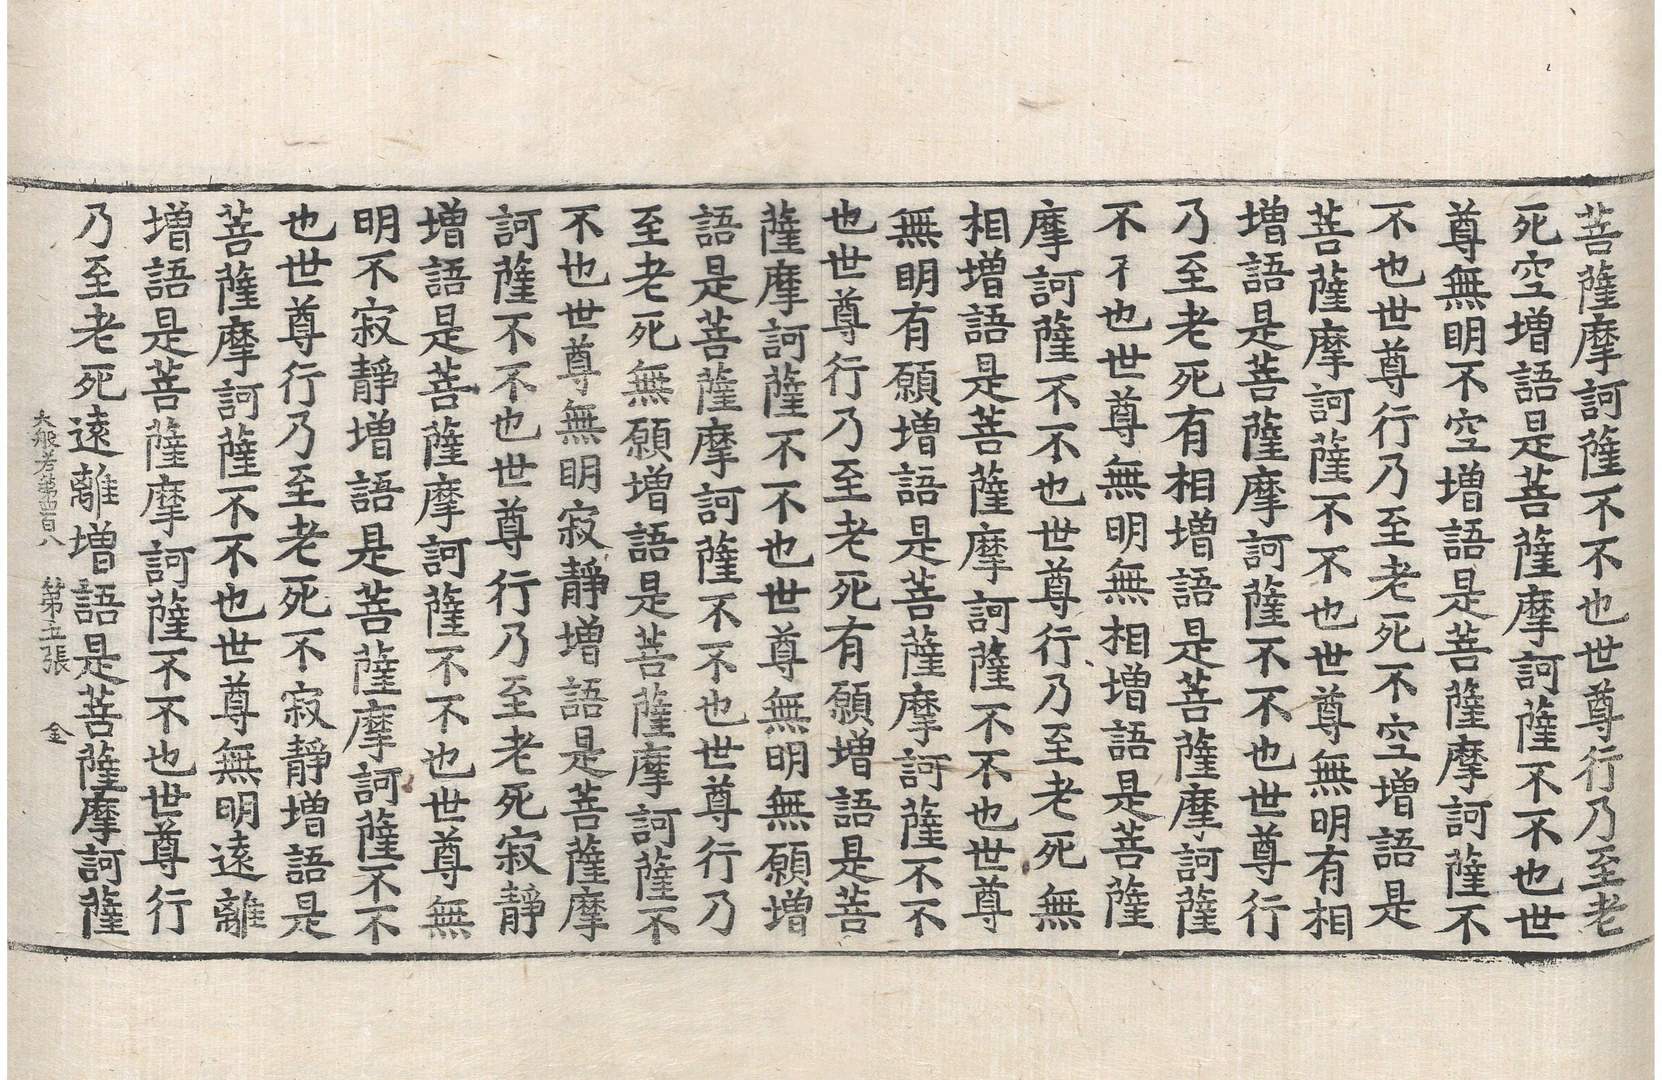 菩薩摩訶薩不不也世尊行乃至老
死空增語是菩薩摩訶薩不不也世
尊無明不空增語是菩薩摩訶薩不
不也世尊行乃至老死不空增語是
菩薩摩訶薩不不也世尊無明有相
增語是菩薩摩訶薩不不也世尊行
乃至老死有相增語是菩薩摩訶薩
不不也世尊無明無相增語是菩薩
摩訶薩不不也世尊行乃至老死無
相增語是菩薩摩訶薩不不也世尊
無明有願增語是菩薩摩訶薩不不
也世尊行乃至老死有願增語是菩
薩摩訶薩不不也世尊無明無願增
語是菩薩摩訶薩不不也世尊行乃
至老死無願增語是菩薩摩訶薩不
不也世尊無明寂靜增語是菩薩摩
訶薩不不也世尊行乃至老死寂靜
增語是菩薩摩訶薩不不也世尊無
明不寂靜增語是菩薩摩訶薩不不
也世尊行乃至老死不寂靜增語是
菩薩摩訶薩不不也世尊無明遠離
增語是菩薩摩訶薩不不也世尊行
乃至老死遠離增語是菩薩摩訶薩
大般若第四百八 第五張 金